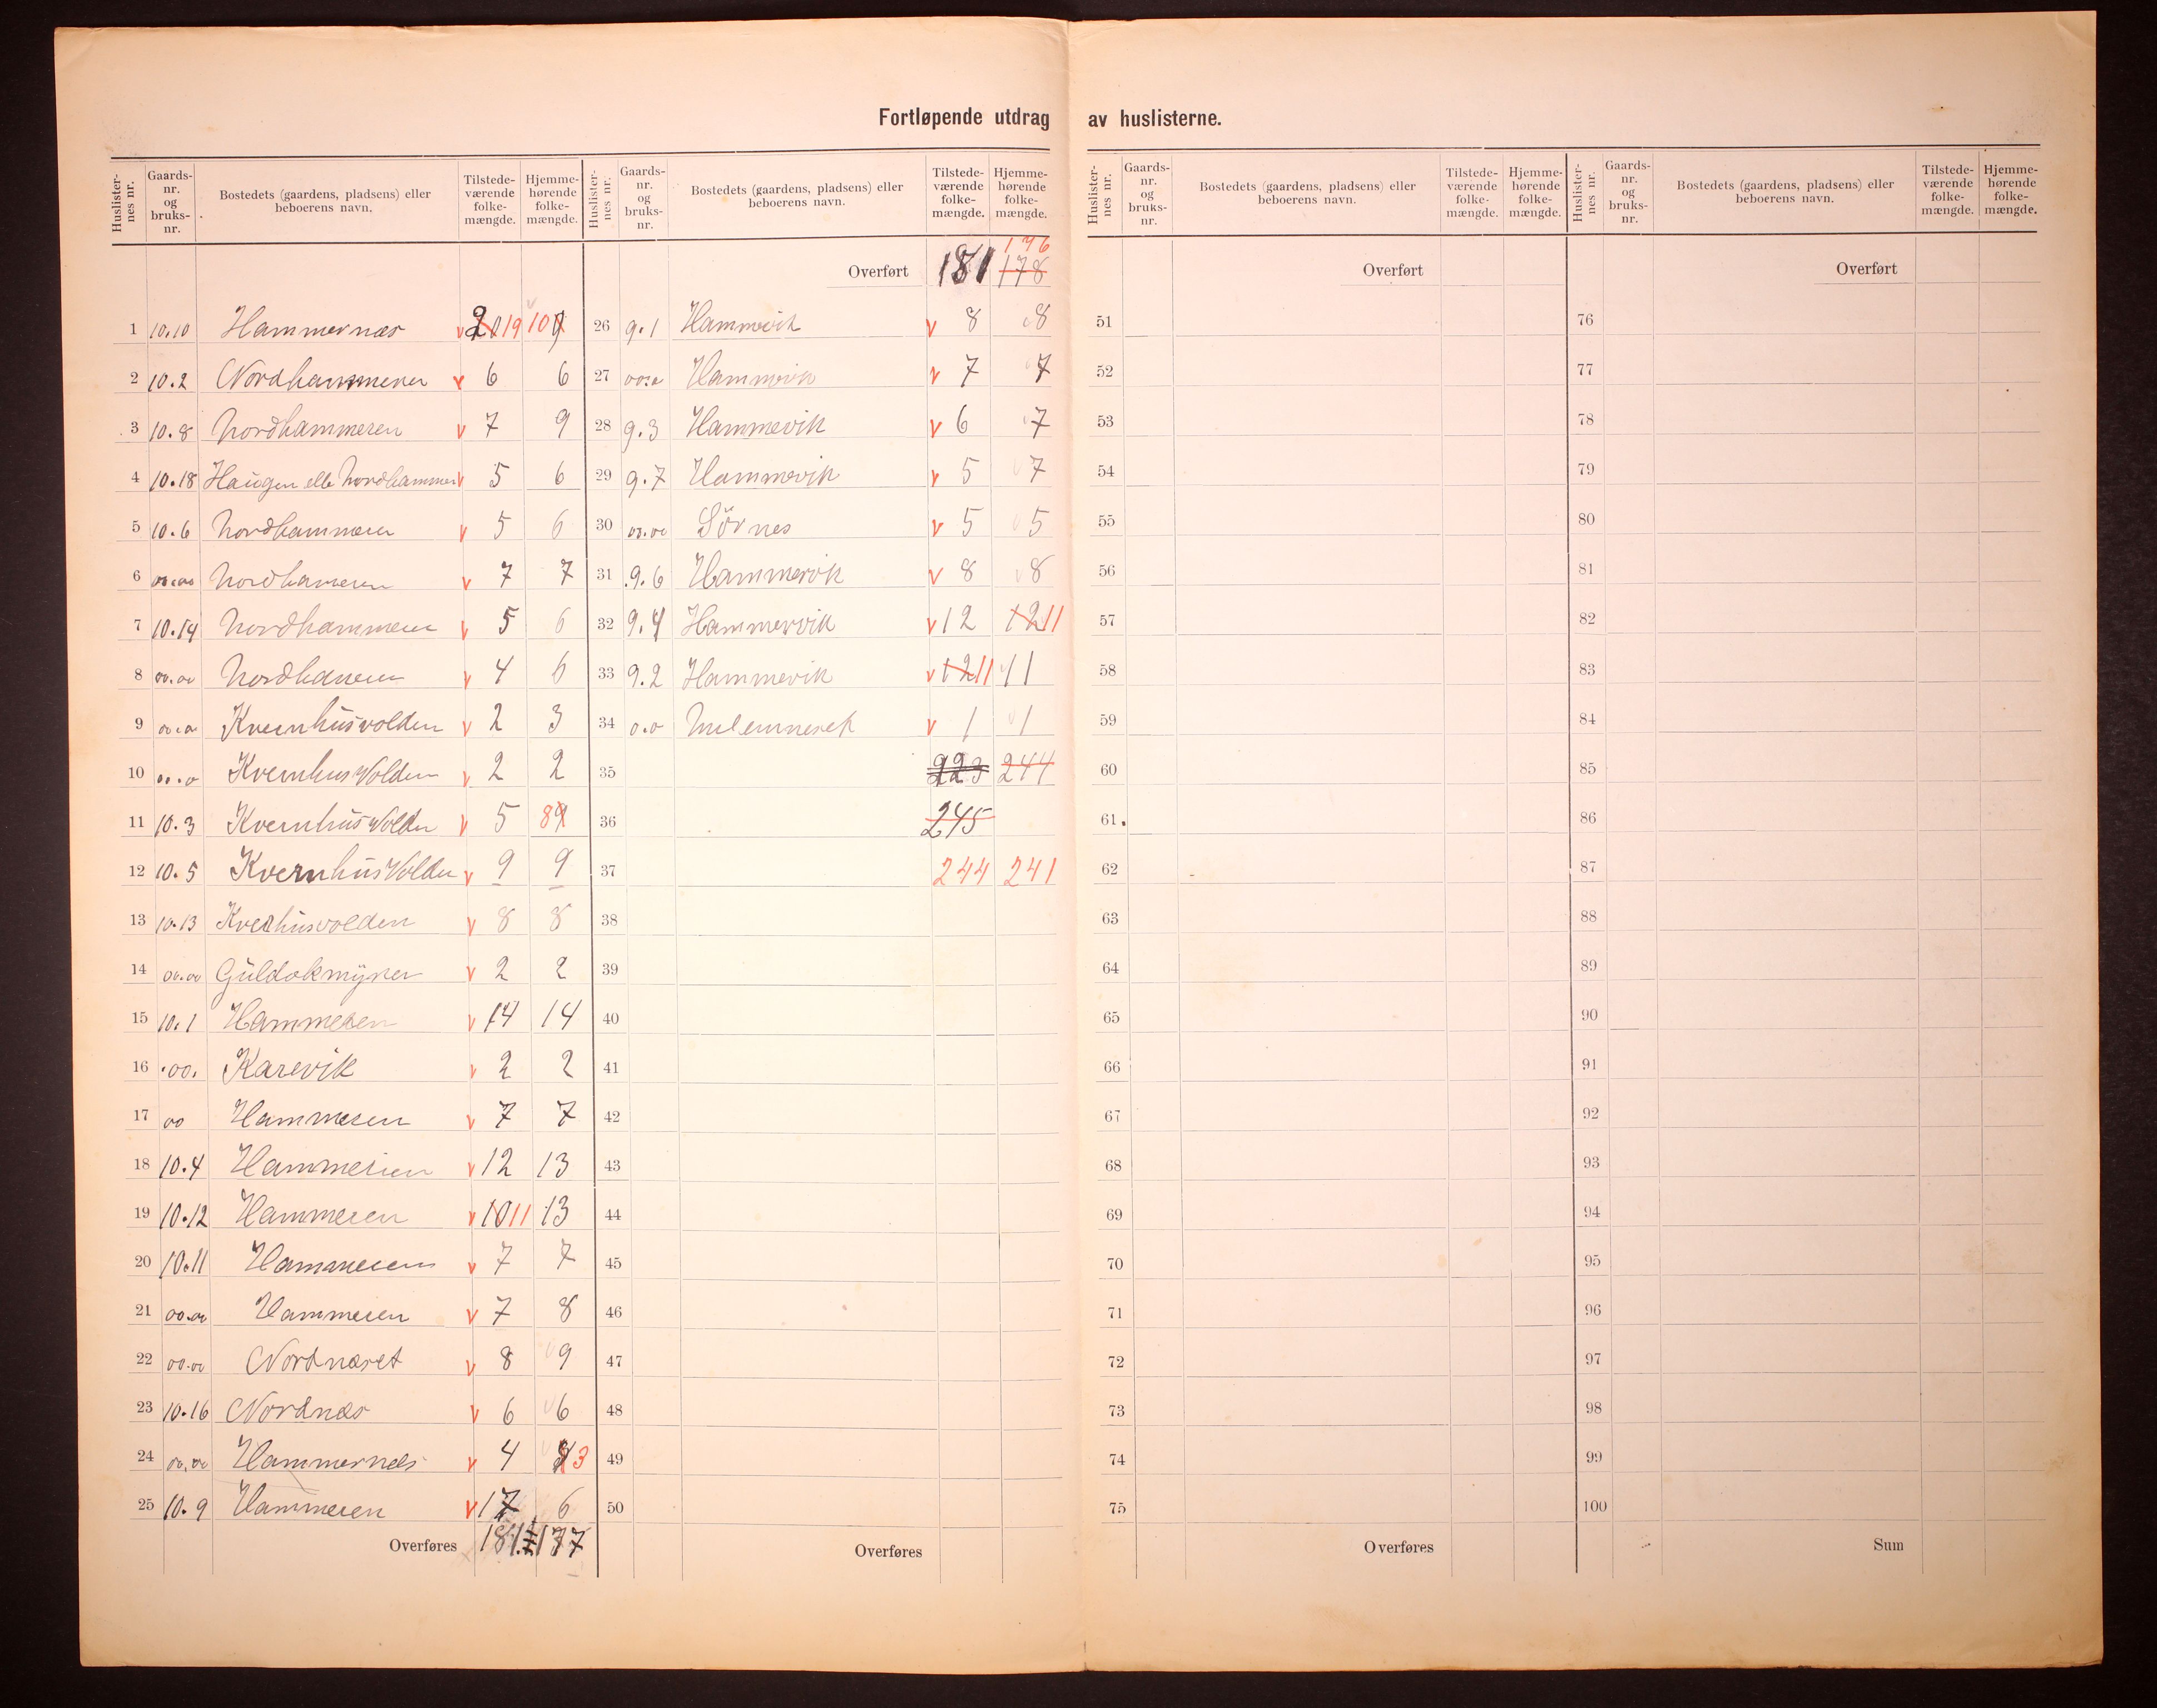 Fortløpende utdrag av huslisterne.
Huslisternes nr. Gaardsnr. og bruksnr. Bostedets (gaardens, pladsens) eller beboerens navn. Tilstedeværende folkemængde. Hjemmehørende folkemængde.
1 10.10 Hammernæs v 20 19 10 9
2 10.2 Nordhammeren v 6 6
3 10.8 Nordhammeren v 7 9
4 10.18 Haugen elle Nordhammer v 5 6
5 10.6 Nordhammeren v 5 6
6 oo.oo Nordhameren v 7 7
7 10.14 Nordhammeren v 5 6
8 oo.oo Nordhameren v 4 6
9 oo.o Kvernhusvolden v 2 3
10 oo.o Kvernhusvolden v 2 2
11 10.3 Kvernhusvolden v 5 8 9
12 10.5 Kvernhusvolden v 9 9
13 10.13 Kverhusvolden v 8 8
14 oo.oo Guldakmyren v 2 2
15 10.1 Hammeren v 14 14
16 .oo. Karevik v 2 2
17 oo Hammeren v 7 7
18 10.4 Hammeren v 12 13
19 10.12 Hammeren v 10 11 13
20 10.11 Hammeren v 7 7
21 oo.oo Hammeren v 7 8
22 oo.oo Nordnæset v 8 9
23 10.16 Nordnæs v 6 6
24 oo.oo Hammernæs v 4 3
25 10.9 Hammeren v 17 6
Overføres 181 177
Huslisternes nr. Gaardsnr. og bruksnr. Bostedets (gaardens, pladsens) eller beboerens navn. Tilstedeværende folkemængde. Hjemmehørende folkemængde.
176
Overført 181 178
26 9.1 Hammervik v 8 8
27 oo.o Hammervik v 7 7
28 9.3 Hammevik v 6 7
29 9.7 Hammevik v 5 7
30 oo.oo Sörnes v 5 5
31 9.6 Hammervik v 8 8
32 9.4 Hammervik v 12 12 11
33 9.2 Hammevik v 12 11 11
34 o.o v 1 1
35 223 244
36 245
37 244 241
38
39
40
41
42
43
44
45
46
47
48
49
50
Overføres
Huslisternes nr. Gaardsnr. og bruksnr. Bostedets (gaardens, pladsens) eller beboerens navn. Tilstedeværende folkemængde. Hjemmehørende folkemængde.
Overført
51
52
53
54
55
56
57
58
59
60
61
62
63
64
65
66
67
68
69
70
71
72
73
74
75
Overføres
Huslisternes nr. Gaardsnr. og bruksnr. Bostedets (gaardens, pladsens) eller beboerens navn. Tilstedeværende folkemængde. Hjemmehørende folkemængde.
Overført
76
77
78
79
80
81
82
83
84
85
86
87
88
89
90
91
92
93
94
95
96
97
98
99
100
Sum